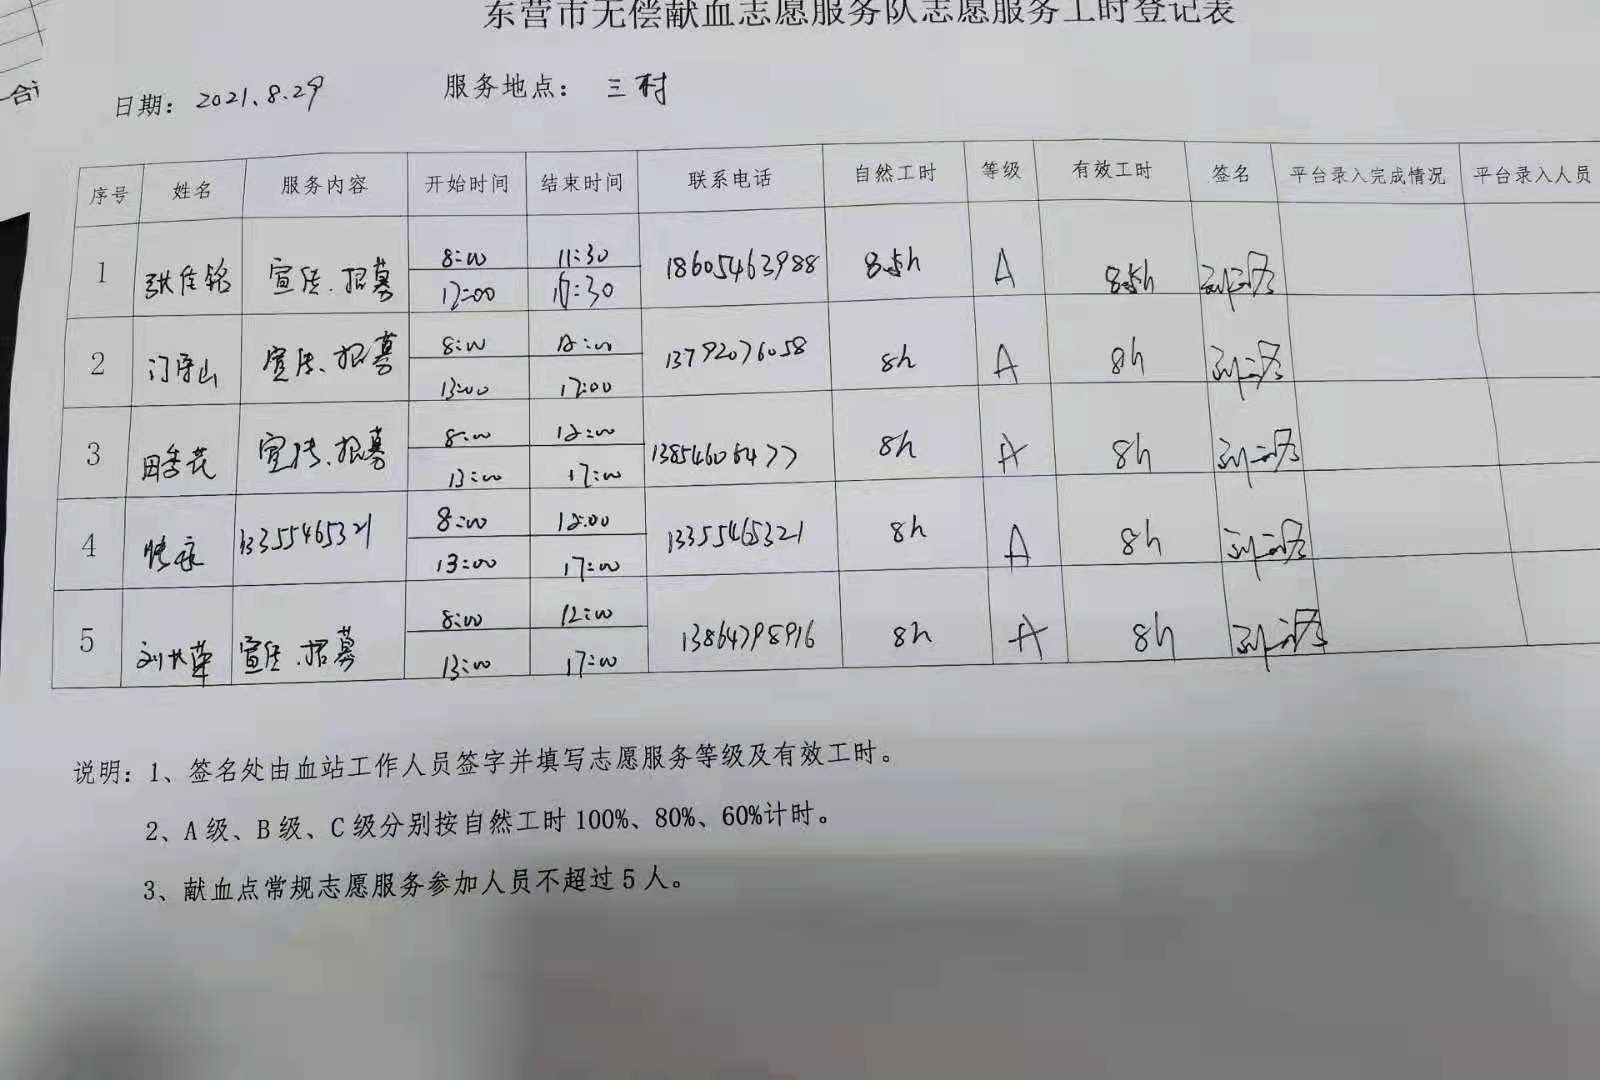 东营市无偿献血志愿服务队志愿服务工时登记表
日期：2021.8.29 服务地点：三村
序号 姓名 服务内容 开始时间 结束时间 联系电话 自然工时 等级 有效工时 签名 平台录入完成情况 平台录入人员
1 张佳铭 宣传.招募 8:00 11:30 18605463988 8.5h A 8.5h
12:00 :30
2 门 山 宣传.招募 8:00 12:00 13792076058 8h A 8h
13:00 17:00
3 田秀花 宣传.招募 8:00 12:00 13854606477 8h A 8h
13:00 17:00
4 13355465321 8:00 12:00 13355465321 8h A 8h
13:00 17:00
5 刘 宣传.招募 8:00 12:00 13864798916 8h A 8h
13:00 17:00
说明：1、签名处由血站工作人员签字并填写志愿服务等级及有效工时。
2、A级、B级、C级分别按自然工时100%、80%、60%计时。
3、献血点常规志愿服务参加人员不超过5人。